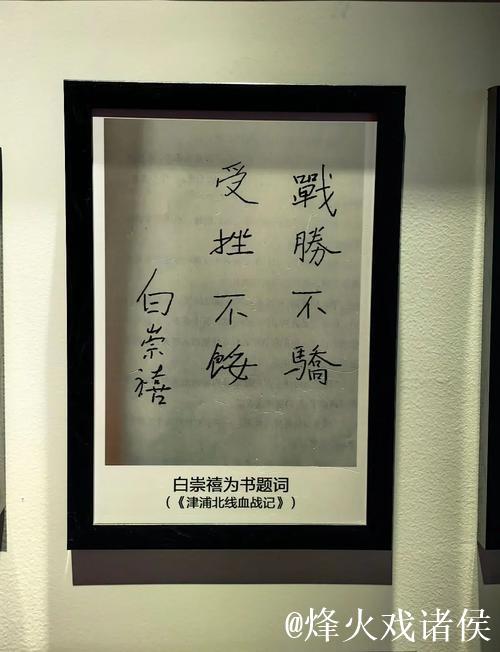 戰勝不驕
受挫不餒
白崇禧
白崇禧为书题词
(《津浦北线血战记》)
@烽火戏诸侯